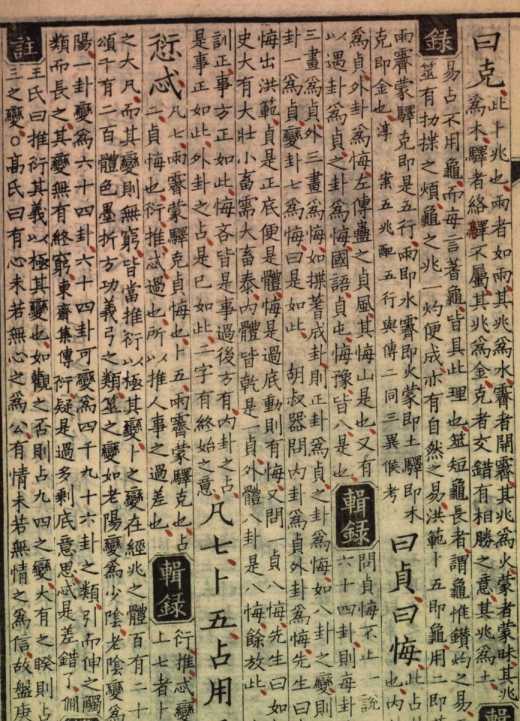 曰克
此卜兆也雨者如雨其兆為水霽者開霽其兆為火蒙者蒙昧其兆
為木驛者絡驛不屬其兆為金克者交錯有相勝之意其兆為土
錄
易占不用龜而每言蓍龜皆具此理也筮短龜長者謂龜惟鑽灼之易
筮有扐揲之煩龜之兆一灼便成亦有自然之易洪範卜五即龜用二即
雨霽蒙驛克即是五行雨即水霽即火蒙即土驛即木
克即金也淳 案五兆配五行與傳二同三異俟考
曰貞曰悔
此占
也內
為貞外卦為悔左傳蠱之貞風其悔山是也又有
以遇卦為貞之卦為悔國語貞屯悔豫皆八是也
輯錄
問貞悔不止一說
六十四卦則每卦
三畫為貞外三畫為悔如揲蓍成卦則正卦為貞之卦為悔如八卦之變則
卦一為貞變卦七為悔曰是如此 胡叔器問內卦為貞外卦為悔先生曰
悔出洪範貞是正底便是體悔是過底動則有悔又問一貞八悔先生曰如
史大有大壯小畜需大畜泰內體皆乾是一貞外體八卦是八悔餘放此
訓正事方正如此悔吝皆是事過後方有內卦之占
是事正如此外卦之占是已如此二字有終始之意
凡七卜五占用
衍忒
凡七雨霽蒙驛克貞悔也卜五雨霽蒙驛克也占
二貞悔也衍推忒過也所以推人事之過差也
輯錄
衍推忒變
上七者卜
之大凡而其變則無窮皆當推衍以極其變卜之變在經兆之體百有二十
頌千有二百體色墨拆方功義弓之類筮之變如老陽變為少陰老陰變為
陽一卦變為六十四卦六十四卦可變為四千九十六卦之類引而伸之觸
類而長之其變無有終窮東齋集傳衍疑是過多剩底意思忒是差錯了僩
註
王氏曰推衍其義以極其變也如觀之否則占九四之變大有之睽則占
三之變○高氏曰有心未若無心之為公有情未若無情之為信故盤庚